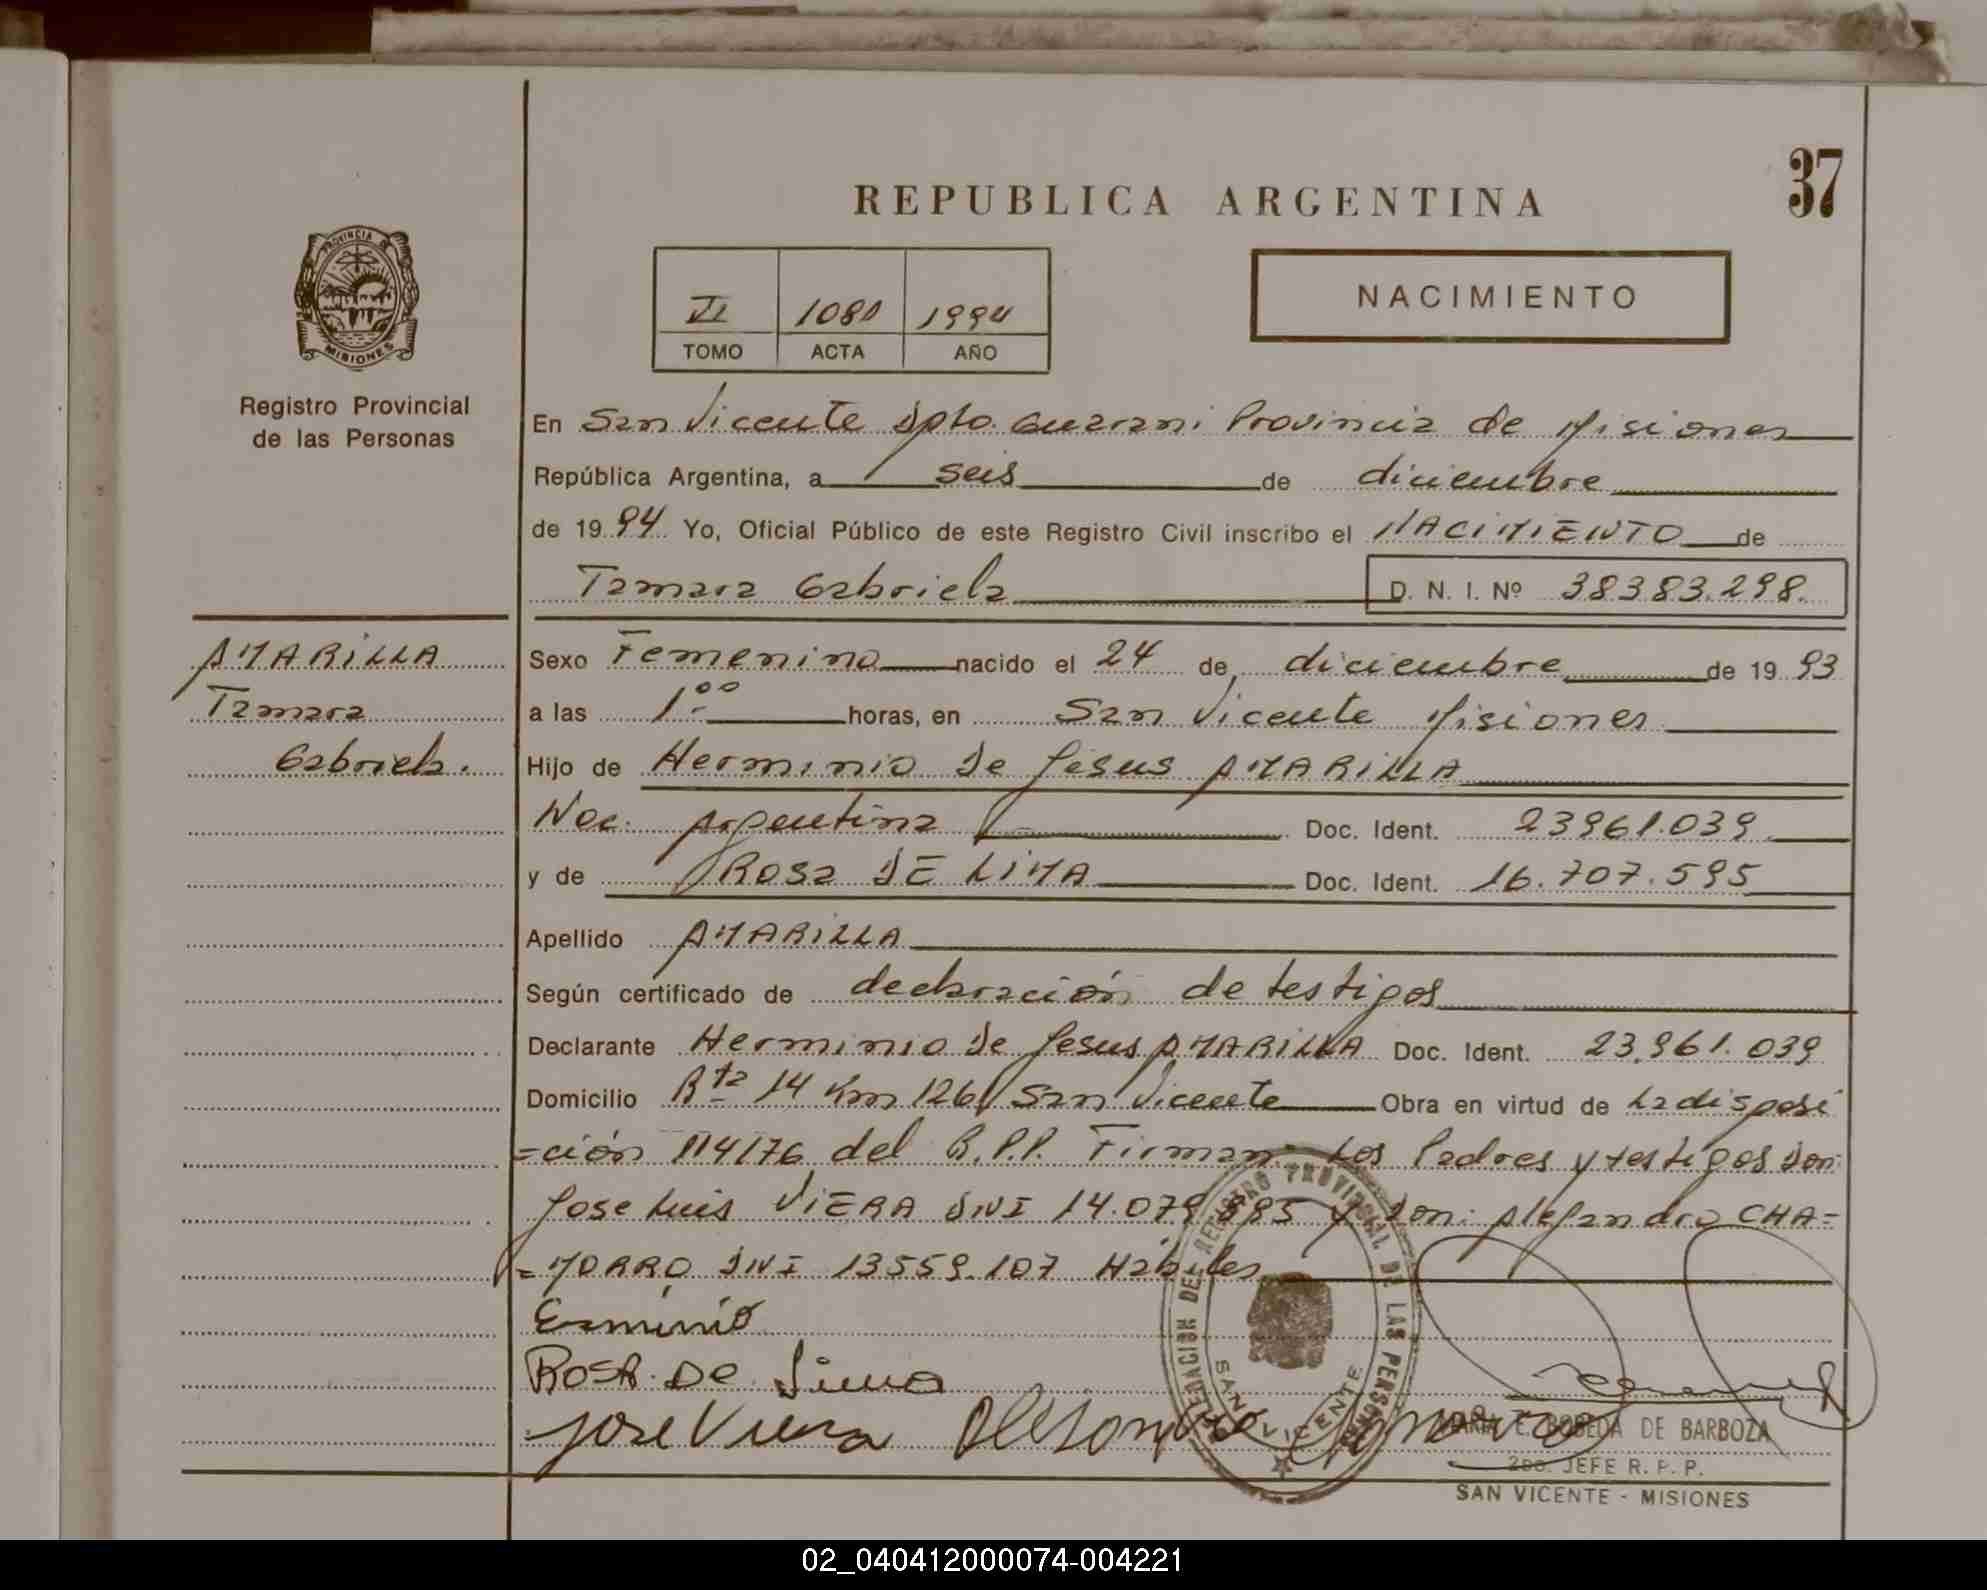 37
REPUBLICA ARGENTINA
PROVINCIA DE
MISIONES
Registro Provincial
de las Personas
VI 1080 1994
TOMO ACTA AÑO
NACIMIENTO
En San Vicente Dpto. Guarani Provincia de Misiones
República Argentina, a seis de diciembre
de 1994 Yo, Oficial Público de este Registro Civil inscribo el NACIMIENTO de
Tamara Gabriela D. N. I. Nº 38383.298.
AMARILLA
Tamara
Gabriela.
Sexo Femenino nacido el 24 de diciembre de 1993
a las 1:00 horas, en San Vicente Misiones
Hijo de Herminio De Jesus AMARILLA
Nac. Argentina Doc. Ident. 23961.039
y de Rosa DE LIMA Doc. Ident. 16.707.595
Apellido AMARILLA
Según certificado de declaración de testigos
Declarante Herminio De Jesus AMARILLA Doc. Ident. 23.961.039
Domicilio Rta 14 Km 126 San Vicente Obra en virtud de La disposi
=ción 114/76 del R.P.P. Firman: Los Padres y testigos Don:
Jose Luis VIERA DNI 14.079.895 y Don: Alejandro CHA=
=MORRO DNI 13559.107 Habiles
Erminio
ROSA DE Lima
Jose Viera Alejandro Chamorro
DELEGACION DEL REGISTRO PROVINCIAL DE LAS PERSONAS
SAN VICENTE
MARIA E. BOBEDA DE BARBOZA
2DO. JEFE R. P. P.
SAN VICENTE - MISIONES
02_040412000074-004221